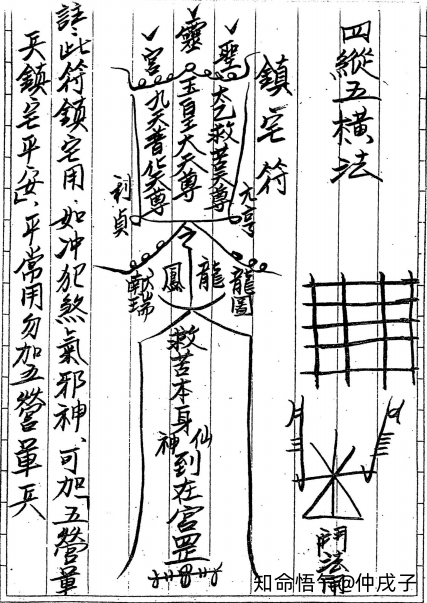 四縱五橫法
鬥法
鎮宅符
聖
靈
宮
太乙救苦天尊
玉皇大天尊
九天普化天尊
元亨
利貞
龍圖
龍
鳳
献瑞
救苦本身
仙
神
到在宮罡
註：此符鎮宅用、如冲犯煞氣邪神、可加「五營軍
兵鎮宅平安」、平常用勿加五營軍兵
知命悟
@仲戌子